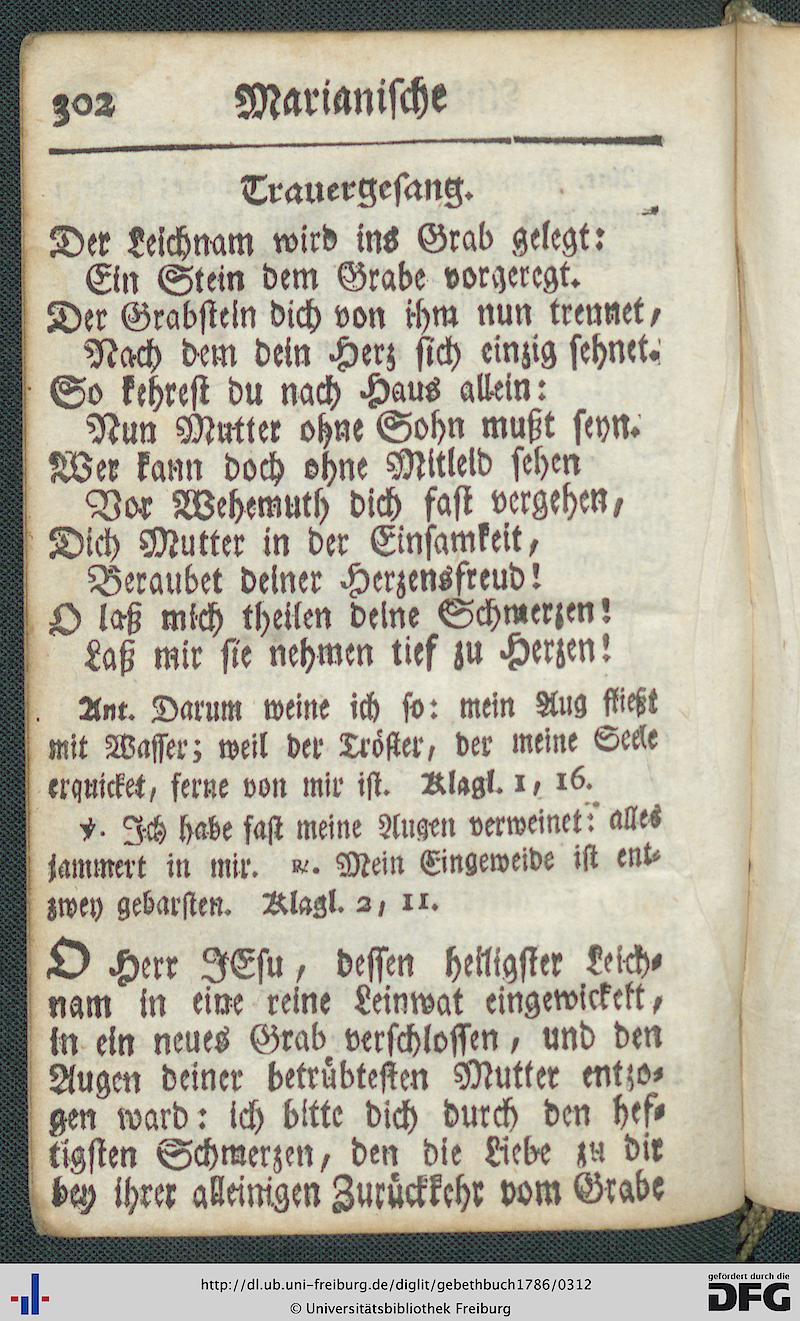 302 Marianische
Trauergesang.
Der Leichnam wird ins Grab gelegt:
Ein Stein dem Grabe vorgeregt.
Der Grabstein dich von ihm nun trennet,
Nach dem dein Herz sich einzig sehnet.
So kehrest du nach Haus allein:
Nun Mutter ohne Sohn mußt seyn.
Wer kann doch ohne Mitleid sehen
Vor Wehemuth dich fast vergehen,
Dich Mutter in der Einsamkeit,
Beraubet deiner Herzensfreud!
O laß mich theilen deine Schmerzen!
Laß mir sie nehmen tief zu Herzen!
Ant. Darum weine ich so: mein Aug fließt
mit Wasser; weil der Tröster, der meine Seele
erquicket, ferne von mir ist. Klagl. 1, 16.
℣. Ich habe fast meine Augen verweinet: alles
jammert in mir. ℟. Mein Eingeweide ist ent-
zwey gebarsten. Klagl. 2, 11.
O Herr JEsu, dessen heiligster Leich-
nam in eine reine Leinwat eingewickelt,
in ein neues Grab verschlossen, und den
Augen deiner betrübtesten Mutter entzo-
gen ward: ich bitte dich durch den hef-
tigsten Schmerzen, den die Liebe zu dir
bey ihrer alleinigen Zurückkehr vom Grabe
http://dl.ub.uni-freiburg.de/diglit/gebethbuch1786/0312
© Universitätsbibliothek Freiburg
gefördert durch die
DFG